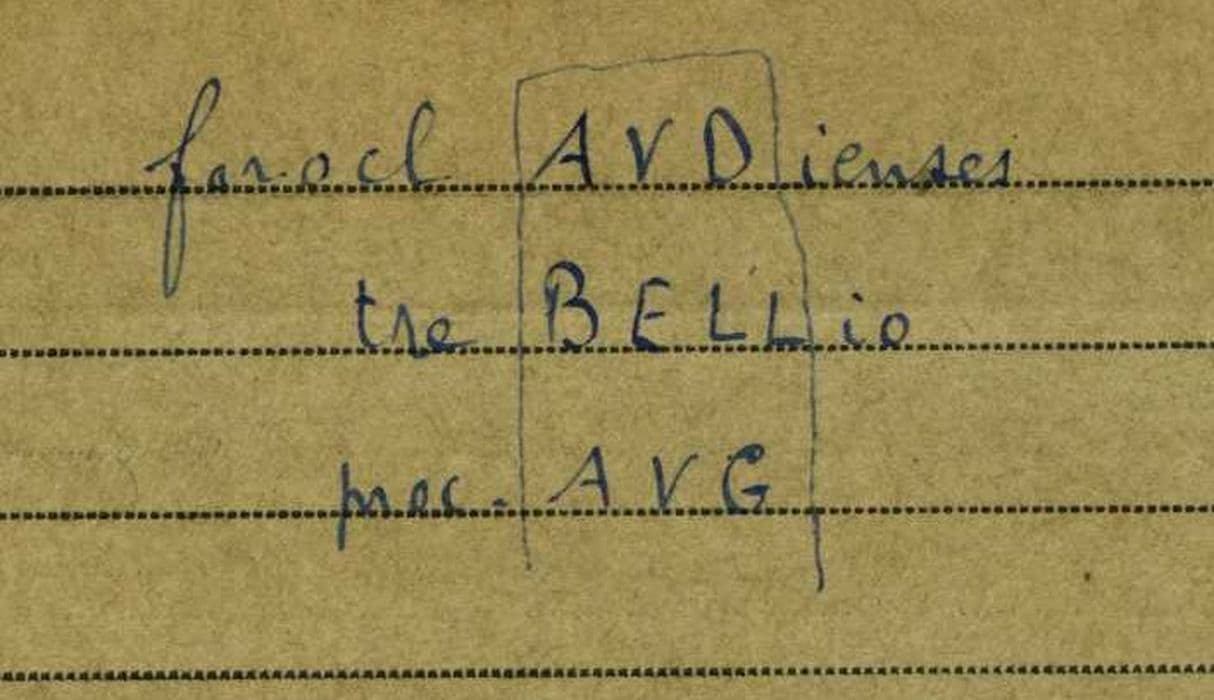 forocl AVDienses
tre BELLio
proc. AVG